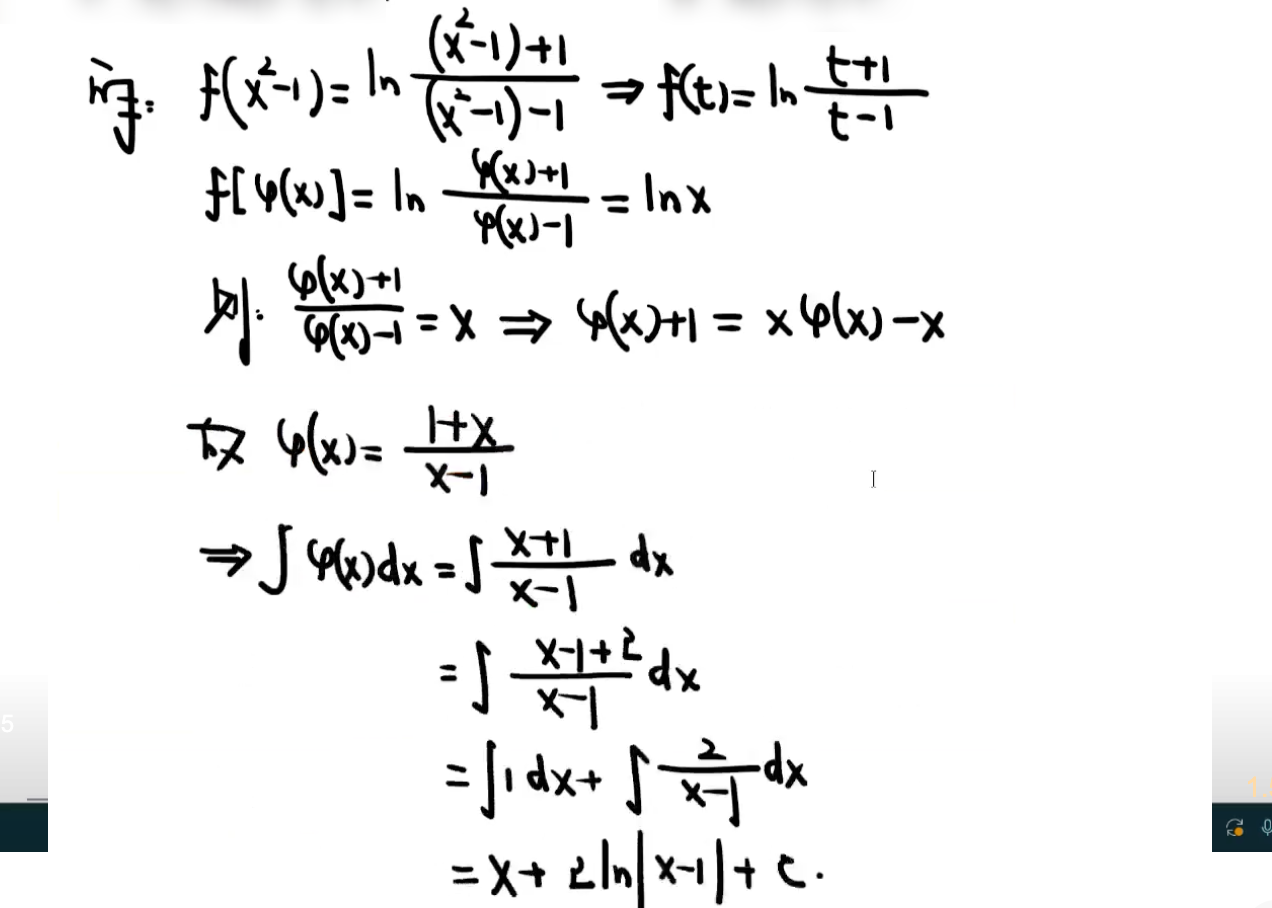 解: f(x²-1) = ln \frac{(x²-1)+1}{(x²-1)-1} ⇒ f(t) = ln \frac{t+1}{t-1}
f[φ(x)] = ln \frac{φ(x)+1}{φ(x)-1} = ln x
则: \frac{φ(x)+1}{φ(x)-1} = x ⇒ φ(x)+1 = xφ(x)-x
故 φ(x) = \frac{1+x}{x-1}
⇒ ∫φ(x)dx = ∫\frac{x+1}{x-1} dx
= ∫\frac{x-1+2}{x-1} dx
= ∫1 dx + ∫\frac{2}{x-1} dx
= x + 2ln|x-1| + C.
5